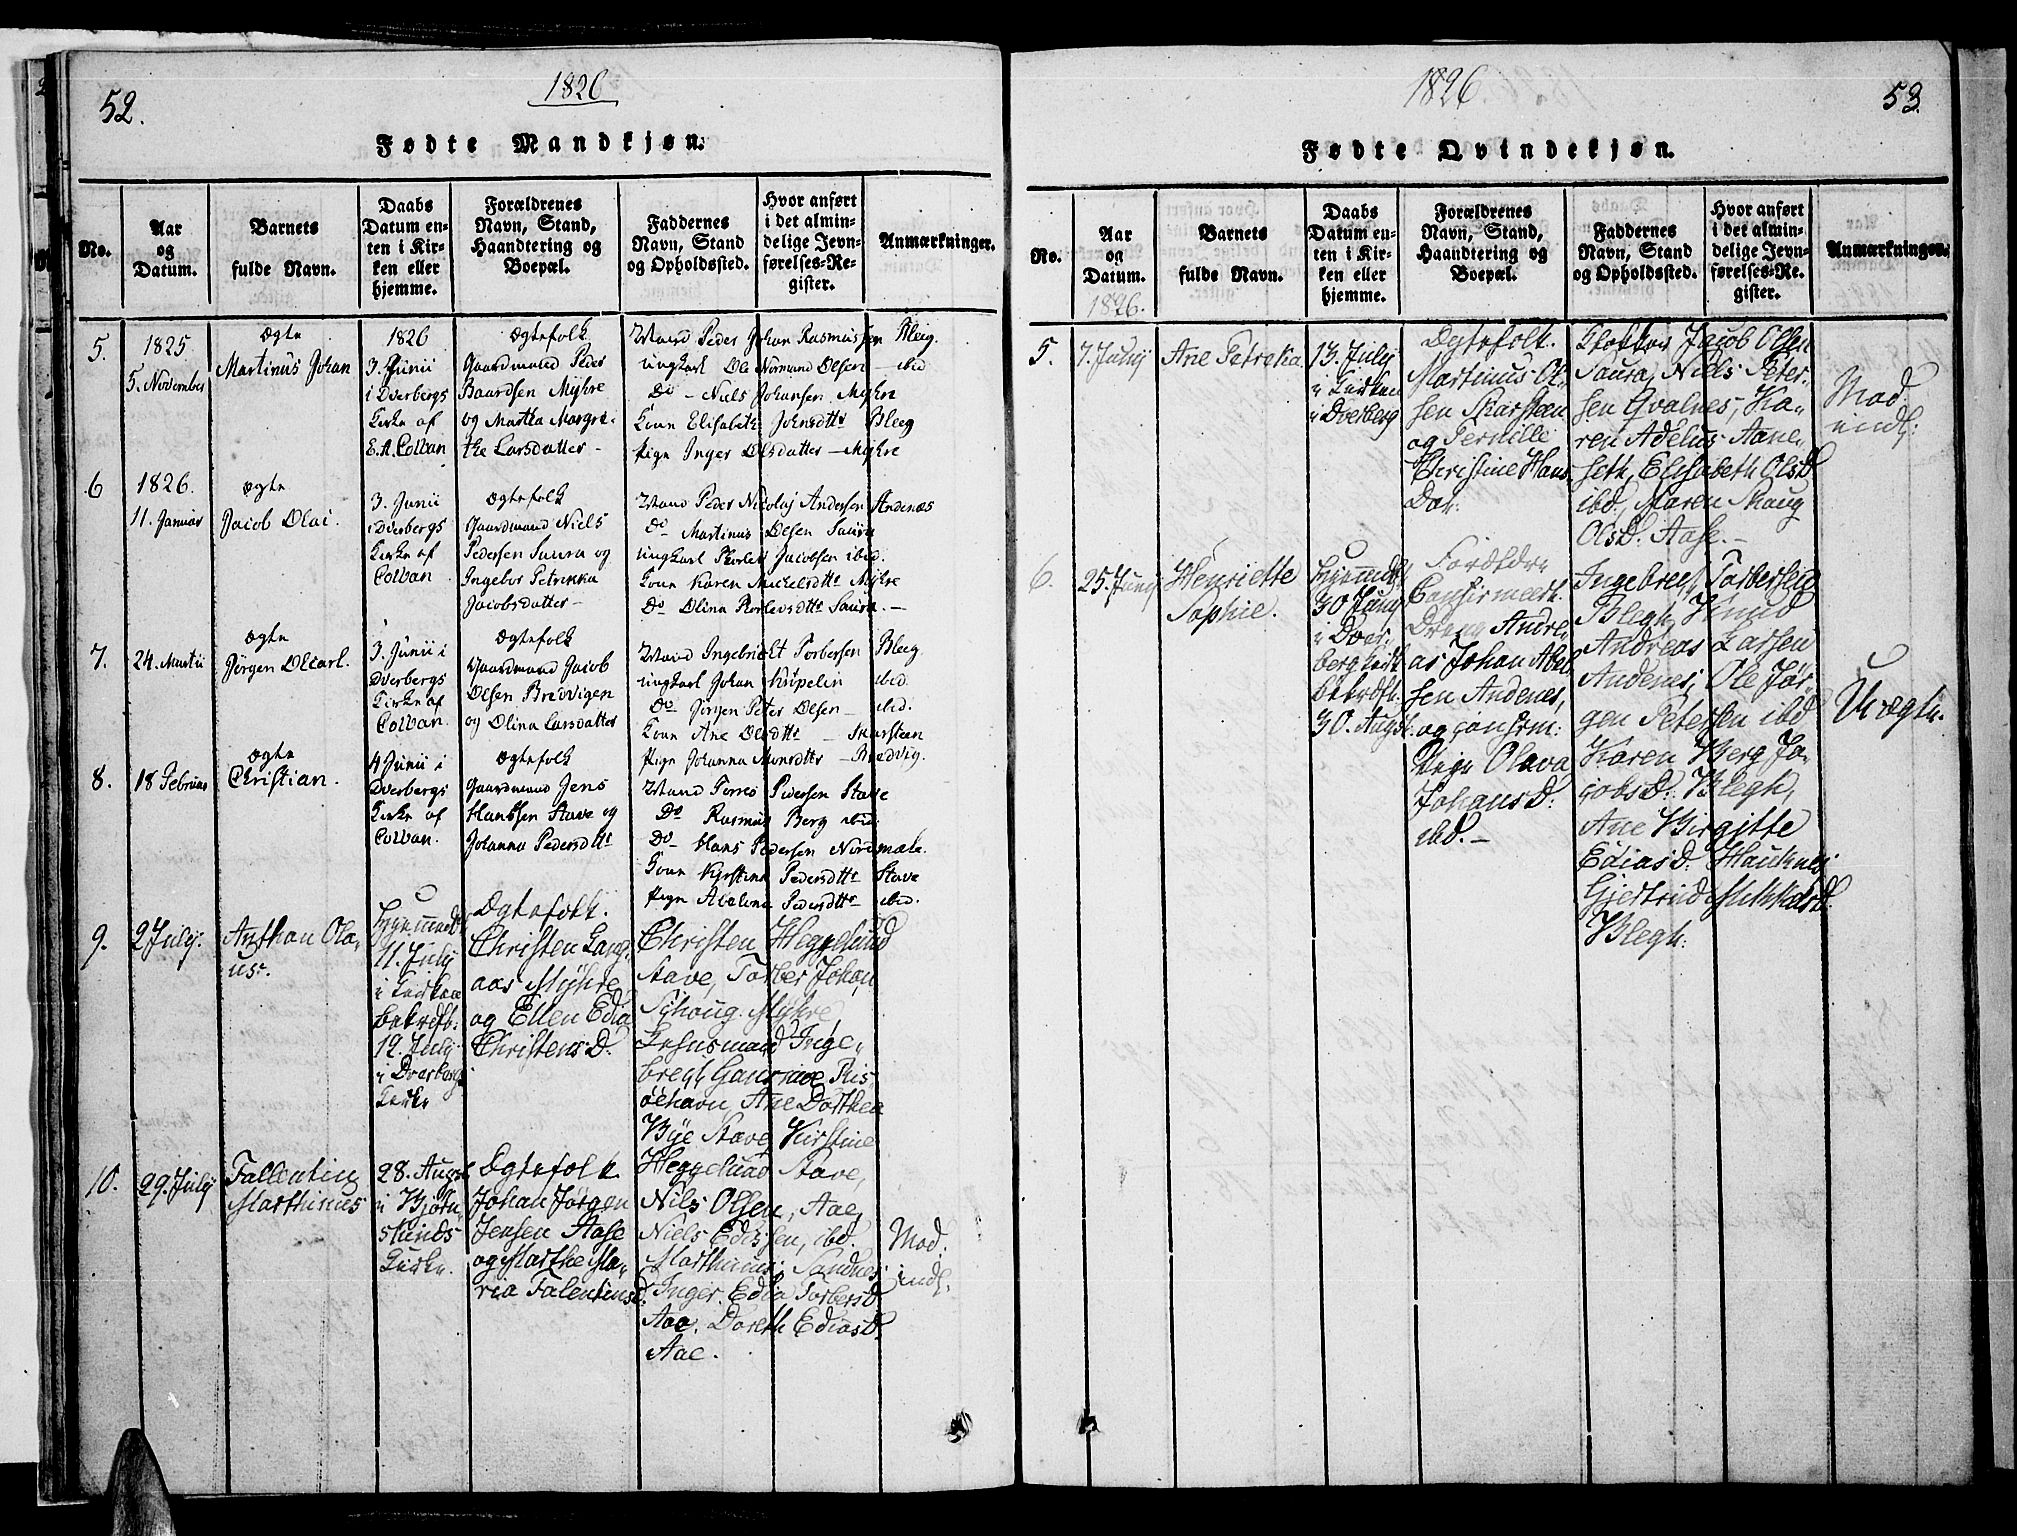 52.
1826
Fødte Mandkjøn.
No.
Aar
og
Datum.
Barnets
fulde Navn.
Daabs
Datum en-
ten i Kir-
ken eller
hjemme.
Forældrenes
Navn, Stand,
Haandtering og
Boepæl.
Faddernes
Navn, Stand
og Opholdssted.
Hvor anført
i det almin-
delige Jevn-
førelses-Re-
gister.
Anmærkninger.
5.
1825
5. November
ægte
Martinus Johan
1826
3. Junii
i Dverbergs
Kirke af
E.A. Colban
Ægtefolk
Gaardmand Peder
Baardsen Myhre
og Martha Margre-
the Larsdatter
Mand Peder Johan Rasmussen Bleeg.
ungkarl Ole Normand Olsen — ibid
Do - Niels Johansen Myhre
Kone Elisabeth Johnsdttr Bleeg
Pige Inger Olsdatter — Myhre
6
1826.
11. Januar
ægte
Jacob Olai.
3. Junii
i Dverbergs
Kirke af
Colban
Ægtefolk
Gaardmand Niels
Pedersen Saura og
Ingebor Petrikka
Jacobsdatter
Mand Peder Nicolaj Andersen Andenæs
Do Martinus Olsen Saura
ungkarl Jacobsen ibid.
Kone Karen Michelsdttr Myhre
Do Olina Saura. —
7.
24. Martii
ægte
Jørgen Olearl.
3. Junii i
Dverbergs
Kirke af
Colban.
Ægtefolk
Gaardmand Jacob
Olsen Bredvigen
og Olina Larsdatter
Mand Ingebrigt Torbersen Bleeg
ungkarl Johan ibid.
Do Jørgen Peter Olsen — ibid.
Kone Ane Olsdttr — Skarsteen
Pige Johanna Monsdttr — Bredvig.
8.
18 Februar
ægte
Christian.
4 Junii i
Dverbergs
Kirke af
Colban.
Ægtefolk
Gaardmand Jens
Hansen Stave og
Johanna Pedersdttr
Mand Torres Pedersen Stave
Do Rasmus Berg ibid:
Do Hans Pedersen Nordmæle.
Kone Kirstina Pedersdttr Stave
Pige Abelona Pedersdttr ibid.
9.
2 July.
Anthon Ola-
us.
11. July
i Kirken
bekræft:
19. July
i Dverbergs
Kirke
Ægtefolk.
Christen Lang-
aas Myhre
og Ellen Edia
Christensd.
Christen Heggelund
Stave, Torber Johan
Myhre
Lensmand Inge-
Ris-
øehavn, Ane Dorthea
Bye Stave, Kirstine
Heggelund Stave,
10.
29. July
Fallentin
Marthinus
28. Aug
i Bjørn-
skinds
Kirke.
Ægtefolk
Johan Jørgen
Jensen Aase
og Marthe Ma-
ria Falentinsd.
Nils Olsen, Aae,
Niels Ediassen, ibd.
Marthinus, Sandnes
Inger Edia Torbersd
Aae. Doreth Ediasd.
Aae.
Mod.
indl.
1826
53
Fødte Qvindekjøn.
No.
Aar
og
Datum.
1826.
Barnets
fulde Navn.
Daabs
Datum en-
ten i Kir-
ken eller
hjemme.
Forældrenes
Navn, Stand,
Haandtering og
Boepæl.
Faddernes
Navn, Stand
og Opholdssted.
Hvor anført
i det almin-
delige Jevn-
førelses-Re-
gister.
Anmærkninger.
5.
7. Juny
Ane Petreka
13. July
i Kirken
i Dverberg
Ægtefolk.
Martinus Ol-
sen Skarsteen
og Pernille
Christine Hans
Dar.
Klokker Jacob Olsen
Saura, Niels Peter-
sen Qvalnes, Ka-
ren Adelus Aane-
seth, Elisabeth Olsd
ibd, Maren Skaug
Olsd. Aase. —
Mod.
indl:
6.
25. Juny
Henriette
Sophie.
30 Juny
i Dver-
berg Kirk
bekræft:
30. Augst.
Forældre
Confirmeert.
Dreng Andre-
as Johan Abel-
sen Andenes,
og confirm:
Pige Olava
Johansd:
ibd. —
Ingebregt Torbersen
Blegh, Knud
Andreas Larsen
Andenes, Ole Jør-
gen Petersen ibd
Karen Berg Ja-
cobsd: Blegh,
Ane Birgitte
Ediasd: Hauknes
Gjertrud Mikkelsd.
Blegh.
Uægte.